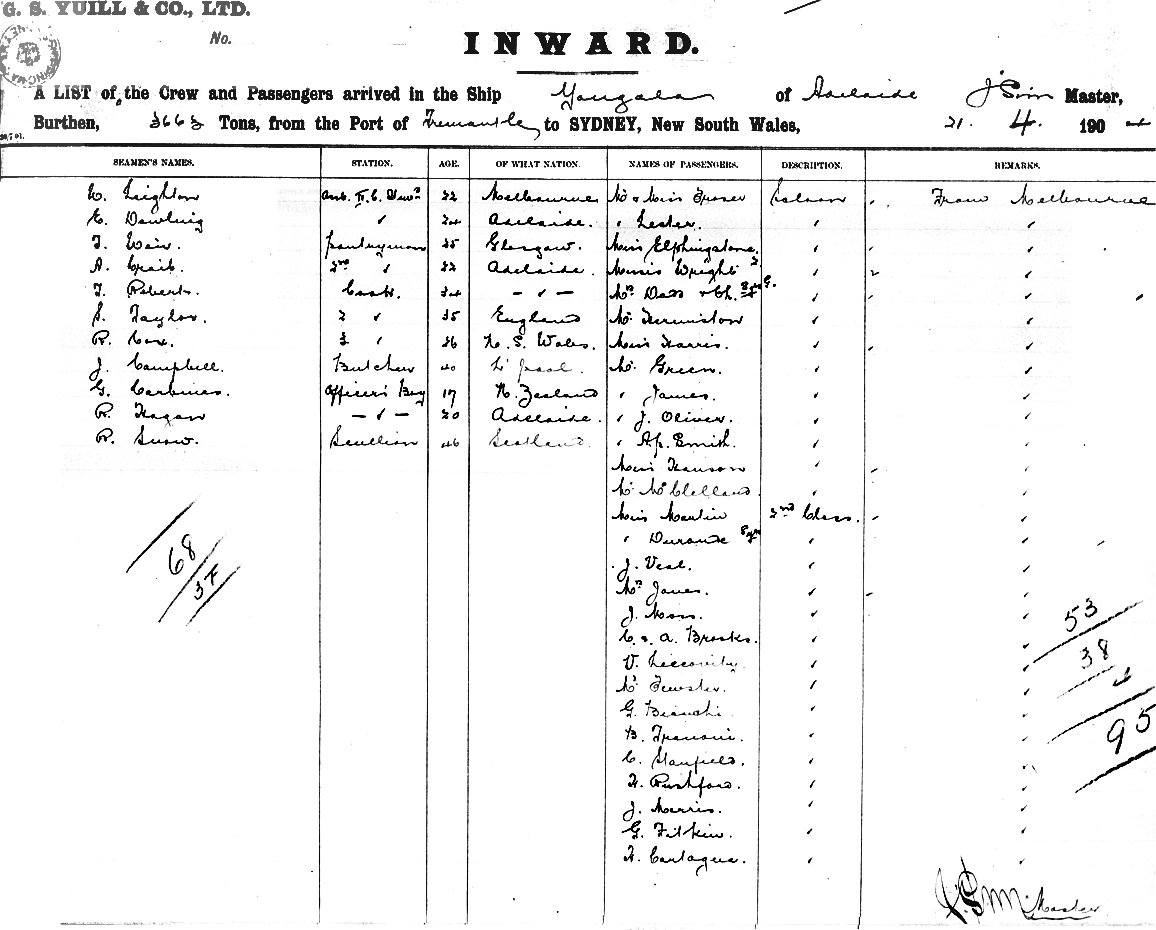 G. S. YUILL & CO., LTD.
No.
INWARD.
A LIST of the Crew and Passengers arrived in the Ship Yongala of Adelaide J Sim Master,
Burthen, 3663 Tons, from the Port of Fremantle to SYDNEY, New South Wales, 21. 4. 1904
SEAMEN'S NAMES. STATION. AGE. OF WHAT NATION. NAMES OF PASSENGERS. DESCRIPTION. REMARKS.
W. Leighton 22 Melbourne Mr & Miss Fraser Saloon From Melbourne
E. Dowling " 24 Adelaide. " Lester. " "
T. Weir. Pantryman 25 Glasgow. Miss Elphingstone. " "
A. 2nd " 22 Adelaide. Misses Wright 2 " "
T. Roberts. Cook. 34 — " — Mrs Dadd & Ch. " "
S. Taylor. 2 " 25 England Mr " "
R. Cox. 3 " 26 N. S. Wales. Miss Harris. " "
J. Campbell. Butcher 40 L'pool. Mr Green. " "
G. Officer's Boy 17 N. Zealand " James. " "
R. Hagan — " — 20 Adelaide. " J. Oliver. " "
R. Snow. Scullion 46 Scotland. " Smith. " "
Miss Hanson " "
Mr McClelland. " "
Miss Martin 2nd Class. "
" " "
J. Veal. " "
Mrs Jones. " "
J. Moss. " "
C. & A. Brooks. " "
V. " "
Mr Fewster. " "
G. Bianchi. " "
B. " "
C. Stanfield. " "
H. Rushford. " "
J. Morris. " "
G. Fitkin. " "
H. " "
68
37
53
38
4
95
J. Sim Master